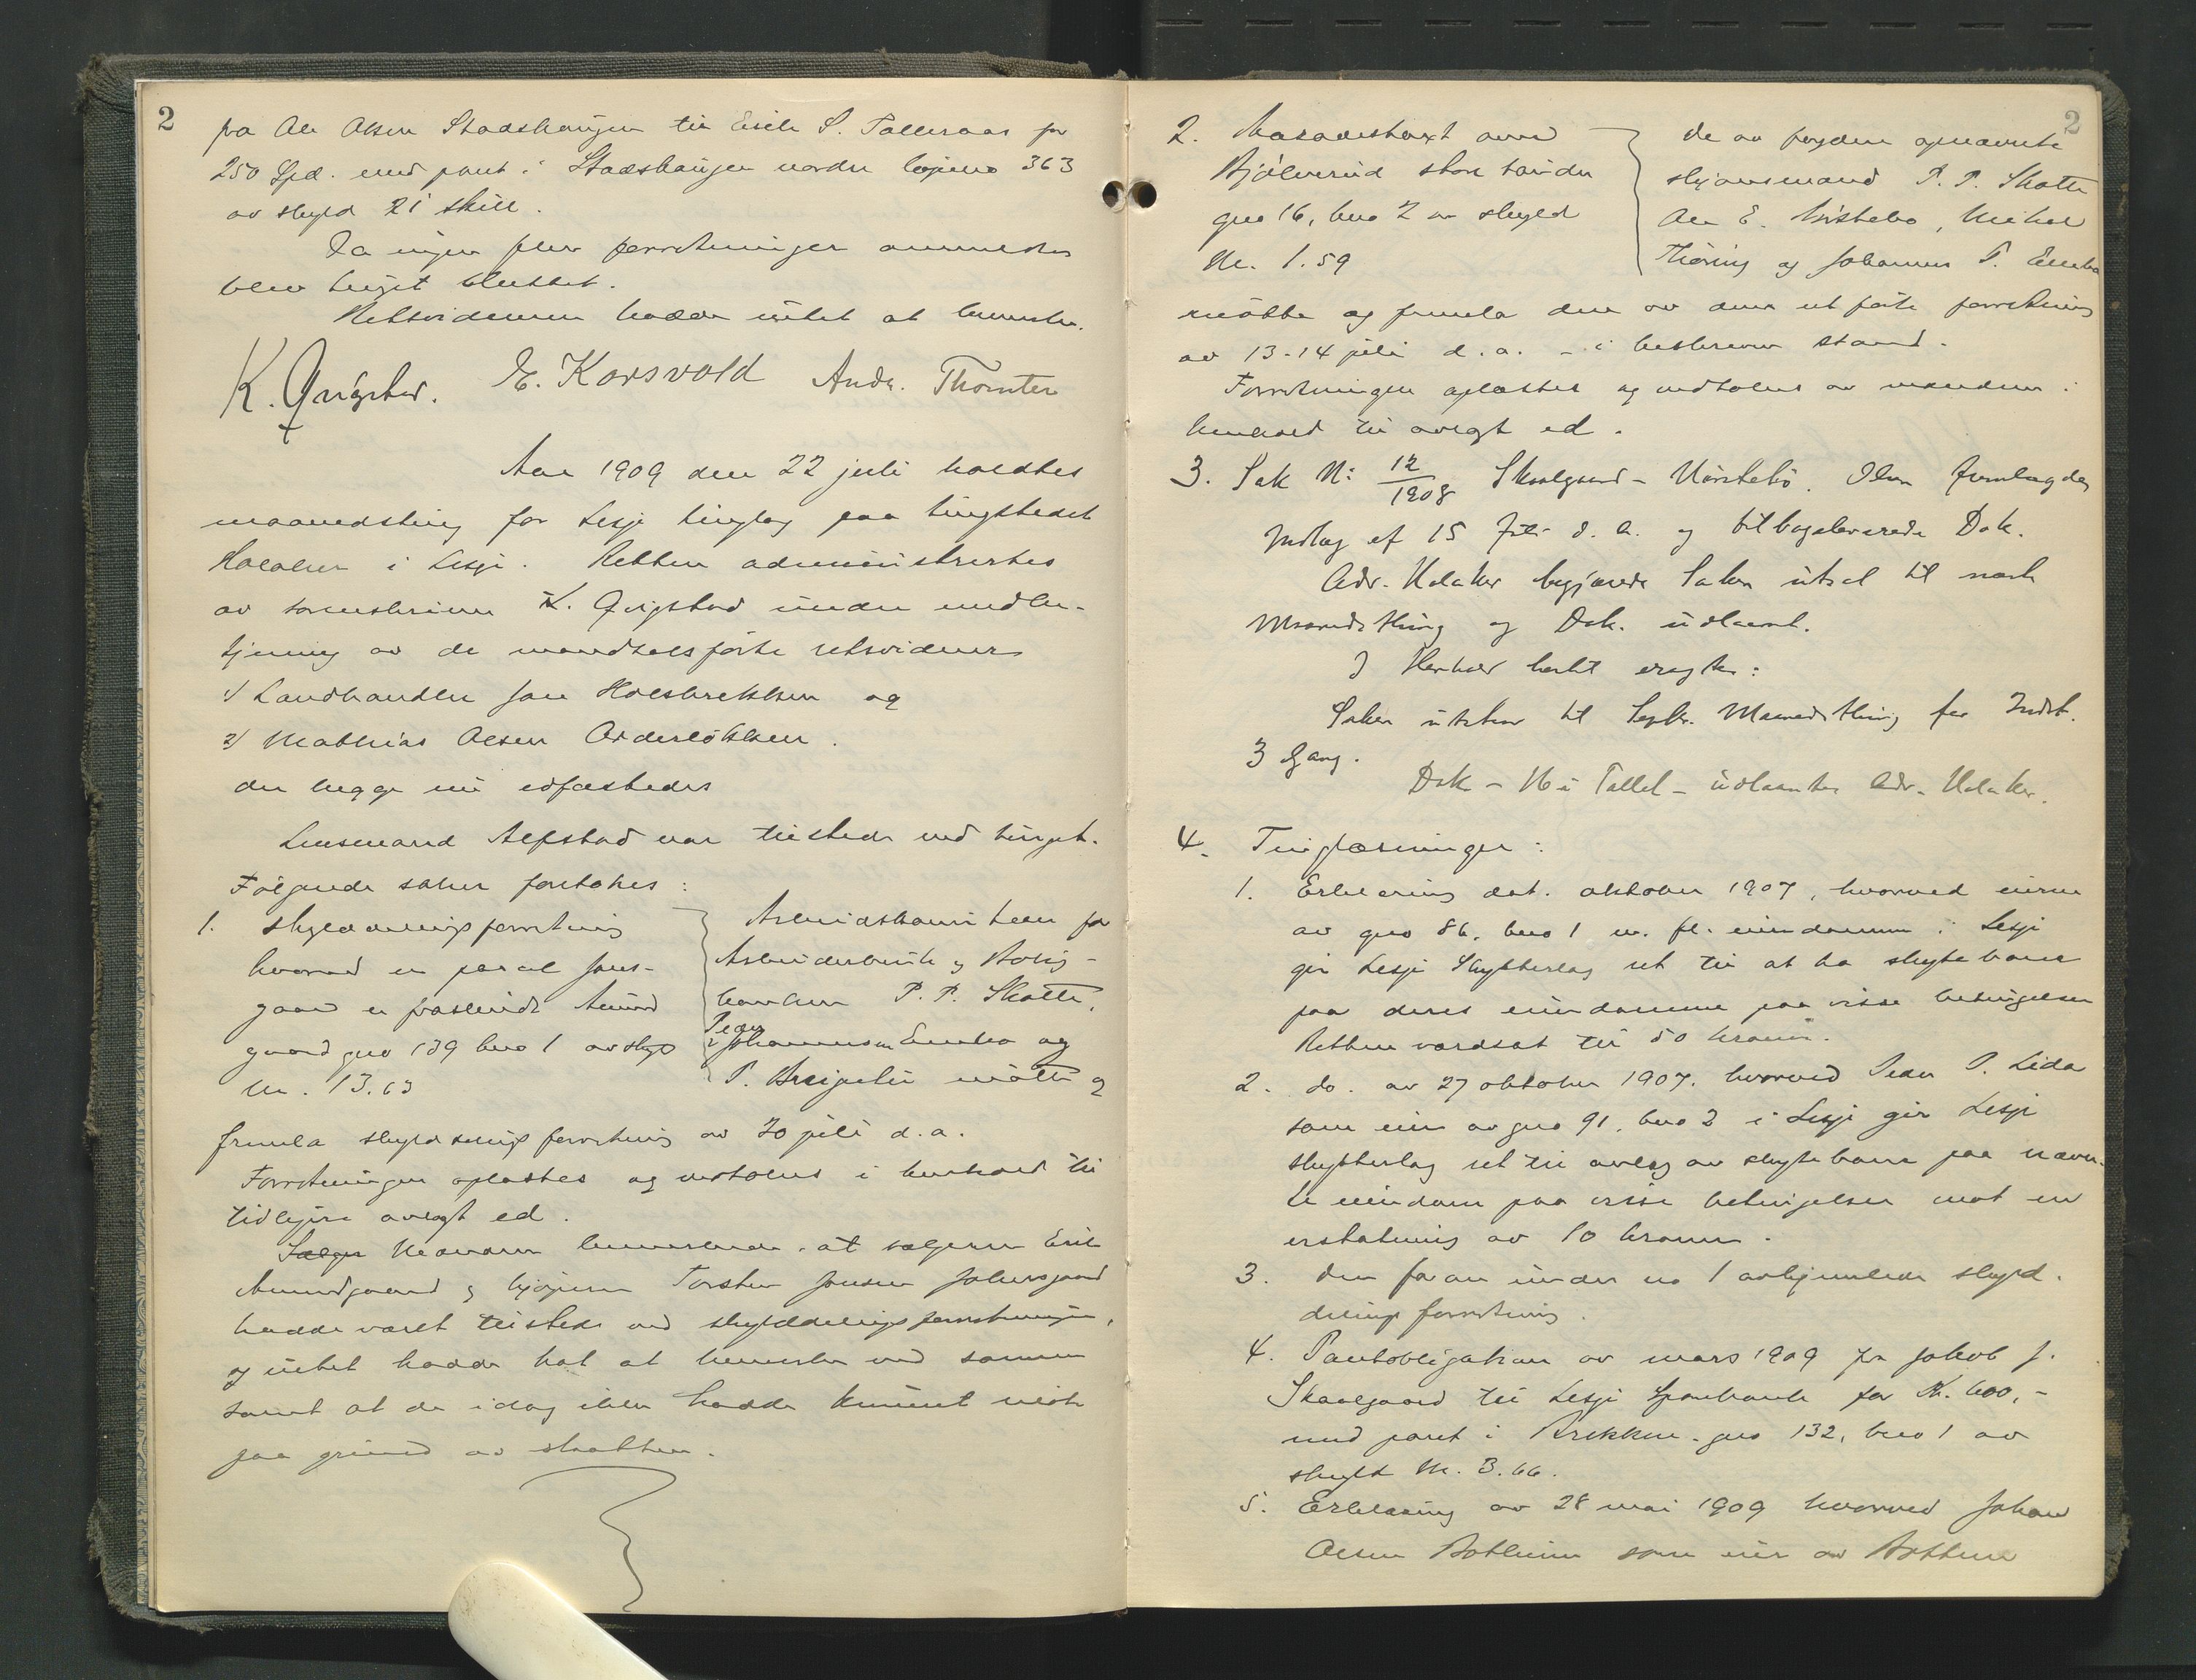 2
fra Ole Olsen Stadshaugen til Erik S. Talleraas for
250 Spd. med pant i Stadshaugen nordre løpeno 363
av skyld 21 skill.
Da ingen flere forretninger anmeldtes
blev tinget sluttet.
Retsvidnerne hadde intet at bemerke.
K. Qvigstad. E. Korsvold Andr. Thomter
Aar 1909 den 22 juli holdtes
maanedsting for Lesje tinglag paa tingstedet
Holaker i Lesje. Retten administrertes
av sorenskriver K. Qvigstad under medbe-
tjening av de mandtalsførte retsvidner
1) Landhandler Jon Holsbrekken og
2) Mathias Olsen Orderløkken.
der begge nu edfæstedes
Lensmand Alfstad var tilstede ved tinget.
Følgende saker foretokes:
1. Skylddelingsforretning
hvorved en parcel Jons-
gaard er fraskilt Amund
gaard gno 139 bno 1 av skyld
m. 13.63
Arbeidskomiteen for
Arbeiderbruk og Bolig-
banken P. P. Skotte,
Peder
Johannesen Enebo og
P. Breijulie møtte og
fremla skylddelingsforretning av 20 juli d.a.
Forretningen oplæstes og vedtokes i henhold til
tidligere avlagt ed.
Sælger Mændene bemerkede at sælgeren Erik
Amundgaard og kjøperen Torsten Jonsen Jonsgaard
hadde været tilstede ved skylddelingsforretningen,
og intet hadde hat at bemerke ved samme
samt at de idag ikke hadde kunnet møte
paa grund av slaatten.
2
2. Aasaadestakst over
Bjølverud store søndre
gno 16, bno 2 av skyld
M. 1.59
De av fogden opnævnte
skjønsmænd P. P. Skotte
Ole E. Kristebo, Mikal
Thøring og Johannes P. Enebo
møtte og fremla den av dem utførte forretning
av 13-14 juli d.a. - i beskreven stand.
Forretningen oplæstes og vedtokes av mændene i
henhold til avlagt ed.
3. Sak N: 12/1908 Skaalgaard - Nørstebø. Olsen fremlagde
Indlæg af 15 Juli d. A. og tilbageleverede Dok.
Adv. Holaker begjærede Saken utsat til næste
Maanedsthing og Dok. udlaant.
I Henhold hertil eragtes:
Saken utsættes til Septbr. Maanedsthing for Indst.
3 Gang.
Dok - N i Tallet - udlaantes Adv. Holaker.
4. Tinglæsninger:
1. Erklæring dat. oktober 1907, hvorved eierne
av gno 86, bno 1 m. fl. eiendomme i Lesje
gir Lesje Skytterlag ret til at ha skytebane
paa deres eiendomme paa visse betingelser
Retten værdsat til 50 kroner.
2. do. av 27 oktober 1907. hvorved Peder P. Lida
som eier av gno 91, bno 2 i Lesje gir Lesje
skytterlag ret til anlæg av skytebane paa nævn-
te eiendom paa visse betingelser mot en
erstatning av 10 kroner.
3. Den foran under no 1 avhjemlede skyld-
delingsforretning.
4. Pantobligation av mars 1909 fra Jakob J.
Skaalgaard til Lesje Sparebank for Kr. 600,-
med pant i Brekken. gno 132, bno 1 av
skyld M. 3.66.
5. Erklæring av 28 mai 1909 hvorved Johan
Olsen Bottheim som eier av Botten